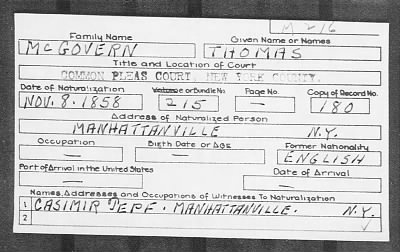 M 216
Family Name Given Name or Names
McGOVERN THOMAS
Title and Location of Court
COMMON PLEAS COURT, NEW YORK COUNTY.
Date of Naturalization Volume or Bundle No. Page No. Copy of Record No.
NOV. 8. 1858 215 — 180
Address of Naturalized Person
MANHATTANVILLE N.Y.
Occupation Birth Date or Age Former Nationality
— — ENGLISH
Port of Arrival in the United States Date of Arrival
— —
Names, Addresses and Occupations of Witnesses To Naturalization
1 CASIMIR TEPF. MANHATTANVILLE. N.Y.
2